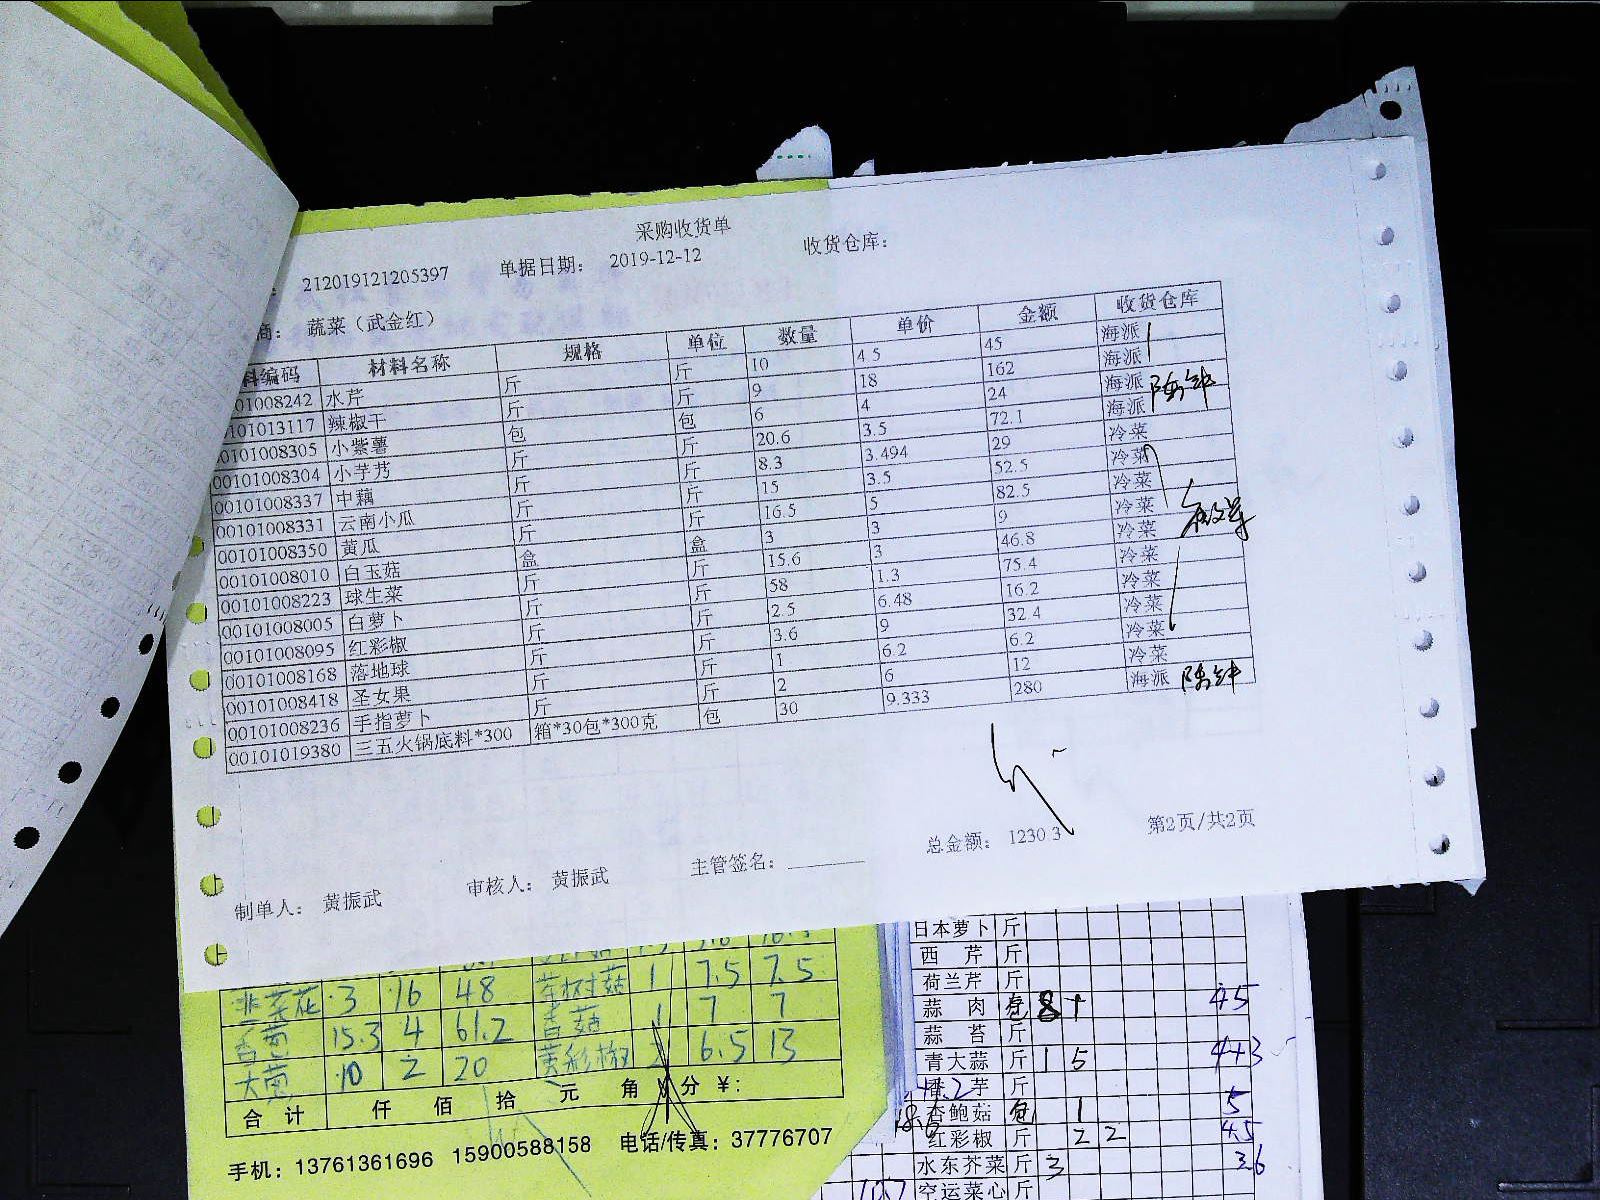 采购收货单
212019121205397 单据日期： 2019-12-12 收货仓库：
商： 蔬菜（武金红）
料编码 材料名称 规格 单位 数量 单价 金额 收货仓库
01008242 水芹 斤 斤 10 4.5 45 海派
101013117 辣椒干 斤 斤 9 18 162 海派
0101008305 小紫薯 包 包 6 4 24 海派
00101008304 小芋艿 斤 斤 20.6 3.5 72.1 海派
00101008337 中藕 斤 斤 8.3 3.494 29 冷菜
00101008331 云南小瓜 斤 斤 15 3.5 52.5 冷菜
00101008350 黄瓜 斤 斤 16.5 5 82.5 冷菜
00101008010 白玉菇 盒 盒 3 3 9 冷菜
00101008223 球生菜 斤 斤 15.6 3 46.8 冷菜
00101008005 白萝卜 斤 斤 58 1.3 75.4 冷菜
00101008095 红彩椒 斤 斤 2.5 6.48 16.2 冷菜
00101008168 落地球 斤 斤 3.6 9 32.4 冷菜
00101008418 圣女果 斤 斤 1 6.2 6.2 冷菜
00101008236 手指萝卜 斤 斤 2 6 12 冷菜
00101019380 三五火锅底料*300 箱*30包*300克 包 30 9.333 280 海派
总金额： 1230.3 第2页/共2页
制单人： 黄振武 审核人： 黄振武 主管签名：
韭菜花 3 16 48 茶树菇 1 7.5 7.5
香葱 15.3 4 61.2 香菇 1 7 7
大葱 10 2 20 黄彩椒 2 6.5 13
合计 仟 佰 拾 元 角 分 ¥:
手机：13761361696 15900588158 电话/传真：37776707
日本萝卜 斤
西芹 斤
荷兰芹 斤
蒜肉 包 8 45
蒜苔 斤
青大蒜 斤 1 5 4+3
芋 斤
杏鲍菇 包 1 5
红彩椒 斤 2 2 4.5
水东芥菜 斤 3 36
空运菜心 斤